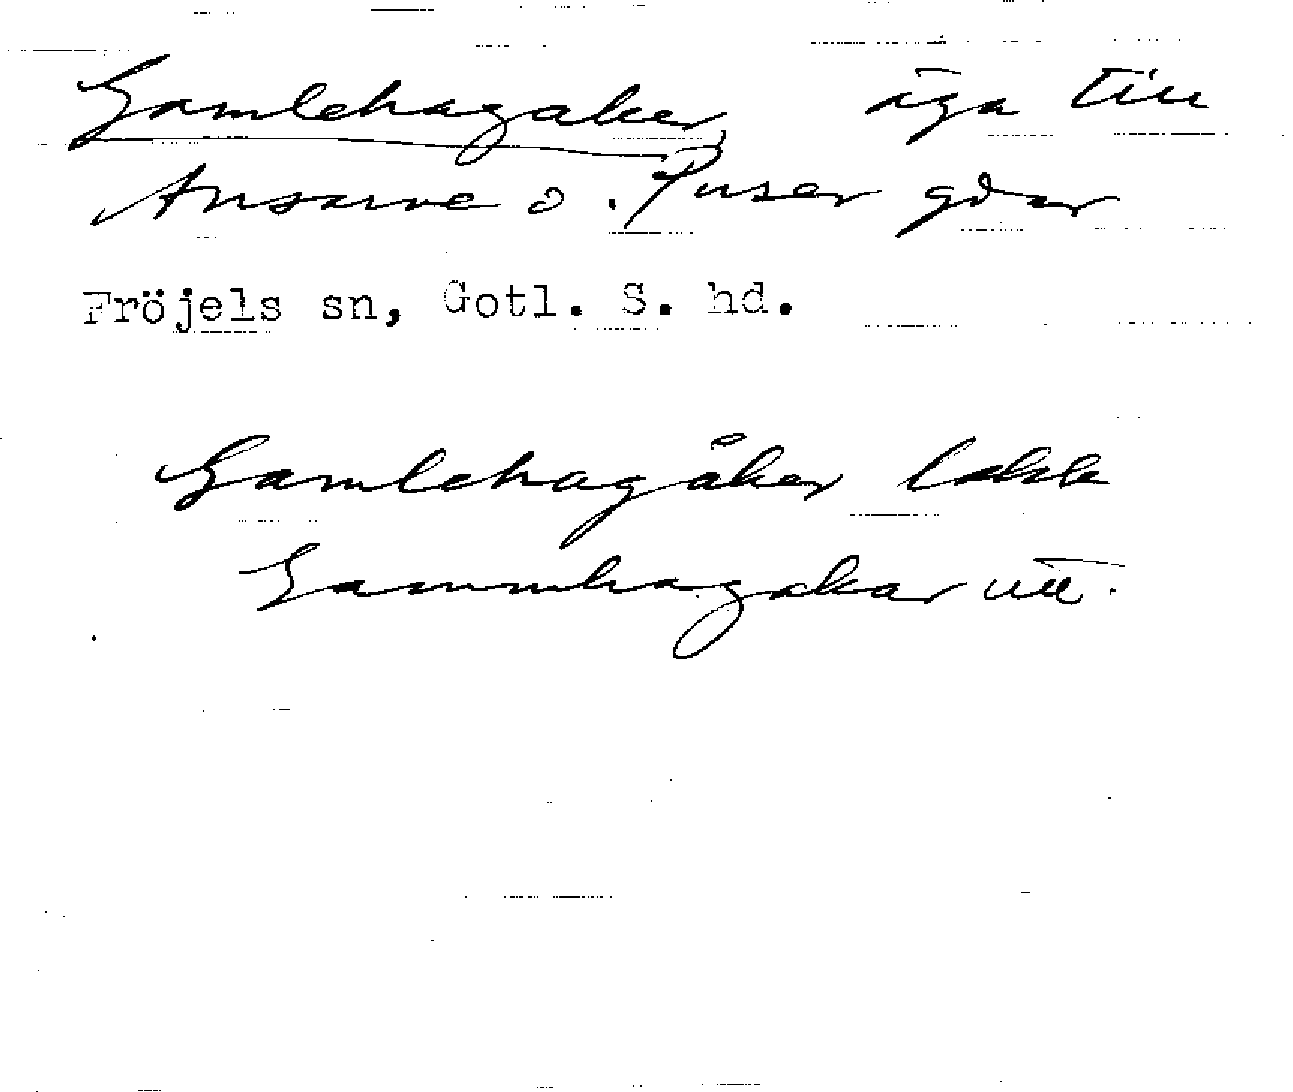 Gamlehagaker, äga till
Ansarve o. Puser gdar
Fröjels sn, Gotl. S. hd.
Gamlehagåker
Gammhagakar utt.